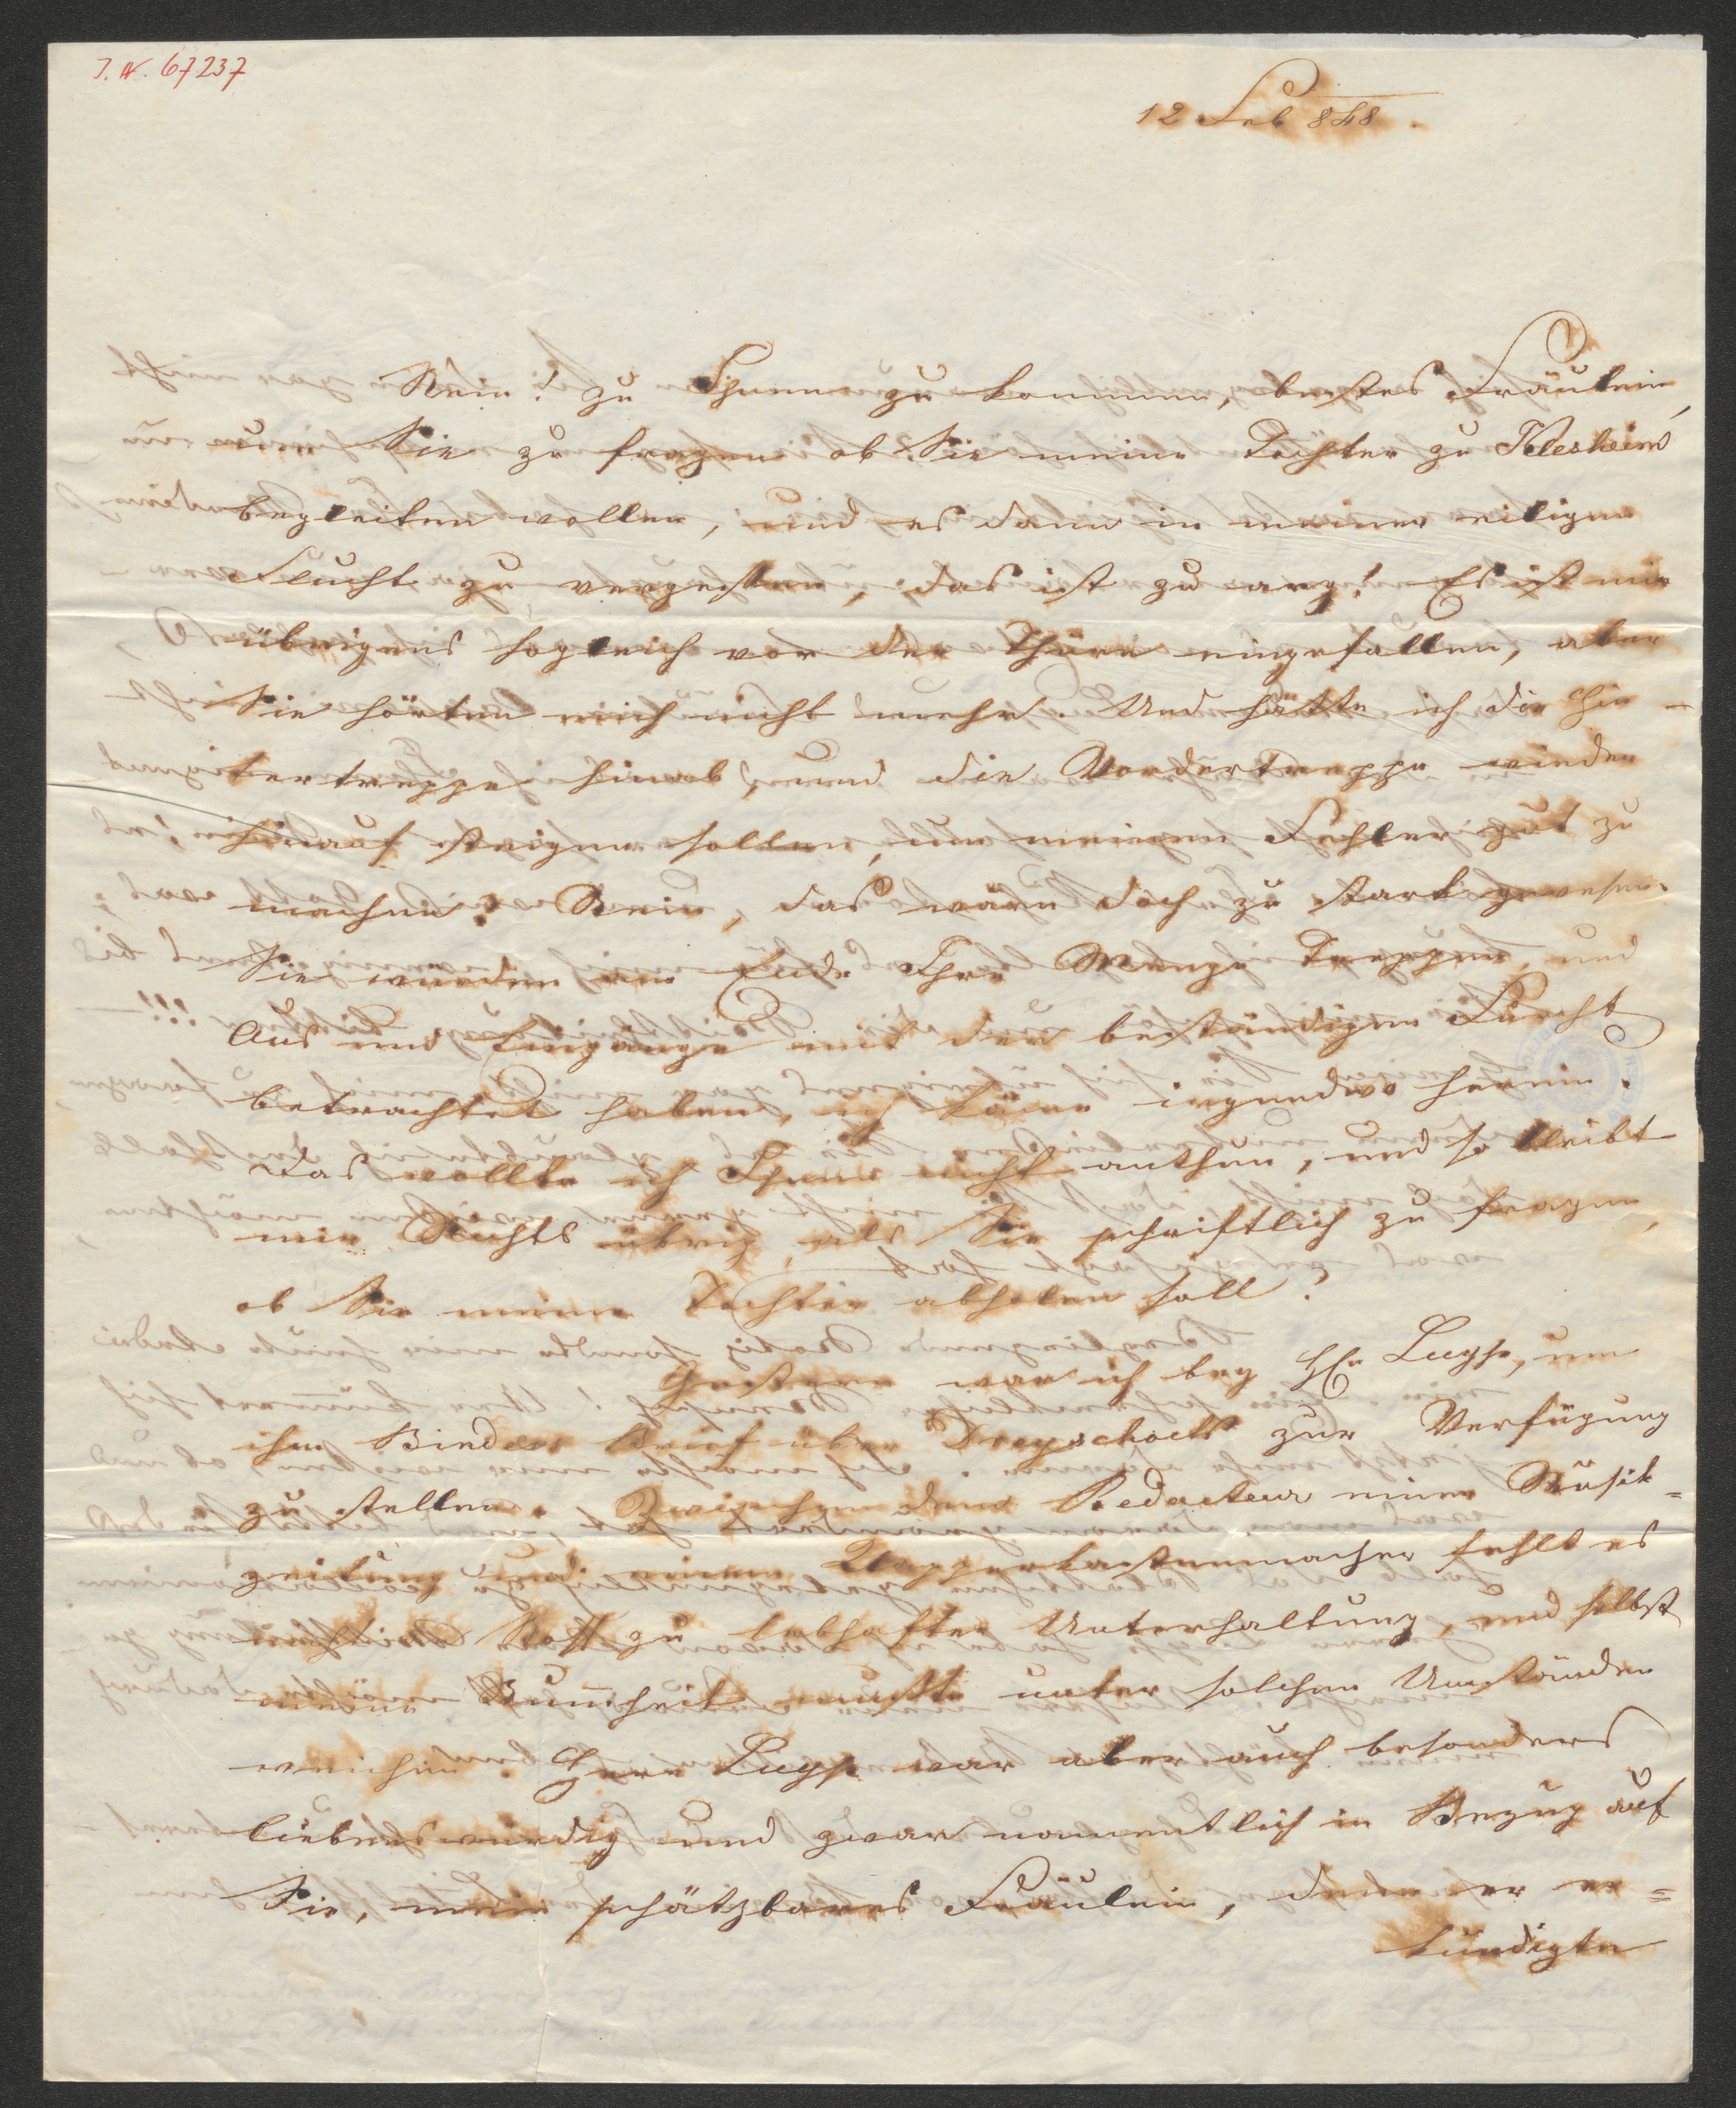 J. N. 67237
12 Feb 848.
Nein! zu Ihnen zu kommen, bestes Fräulein,
um Sie zu fragen ob Sie meine Töchter zu Klesheim
begleiten wollen, und es dann in meiner eiligen
Flucht zu vergessen, das ist zu arg! Es ist mir
übrigens sogleich vor der Thüre eingefallen, aber
Sie hörten mich nicht mehr. Und hätte ich die Hin-
tertreppe hinab, und die Vordertreppe wieder
hinauf steigen sollen, um meinen Fehler gut zu
machen? Nein, das wäre doch zu stark gewesen.
Sie würden am Ende Ihre Menge Treppen, und
Aus und Eingänge mit der beständigen Furcht
betrachtet haben, ich käme irgendwo herein.
Das wollte ich Ihnen nicht anthun, und so bleibt
mir Nichts übrig, als Sie schriftlich zu fragen,
ob Sie meine Tochter abholen soll?
Gestern war ich bey H. Luyss, um
ihm Binders Brief über Dreyschock zur Verfügung
zu stellen. Zwischen dem Redacteur einer Musik=
zeitung und einem Klapperkastenmacher fehlt es
nicht an Stoff zu lebhafter Unterhaltung, und selbst
meine Dummheit mußte unter solchen Umständen
weichen. Herr Luyss war aber auch besonders
liebenswürdig und zwar namentlich in Bezug auf
Sie, mein schätzbares Fräulein, denn er er=
kundigte